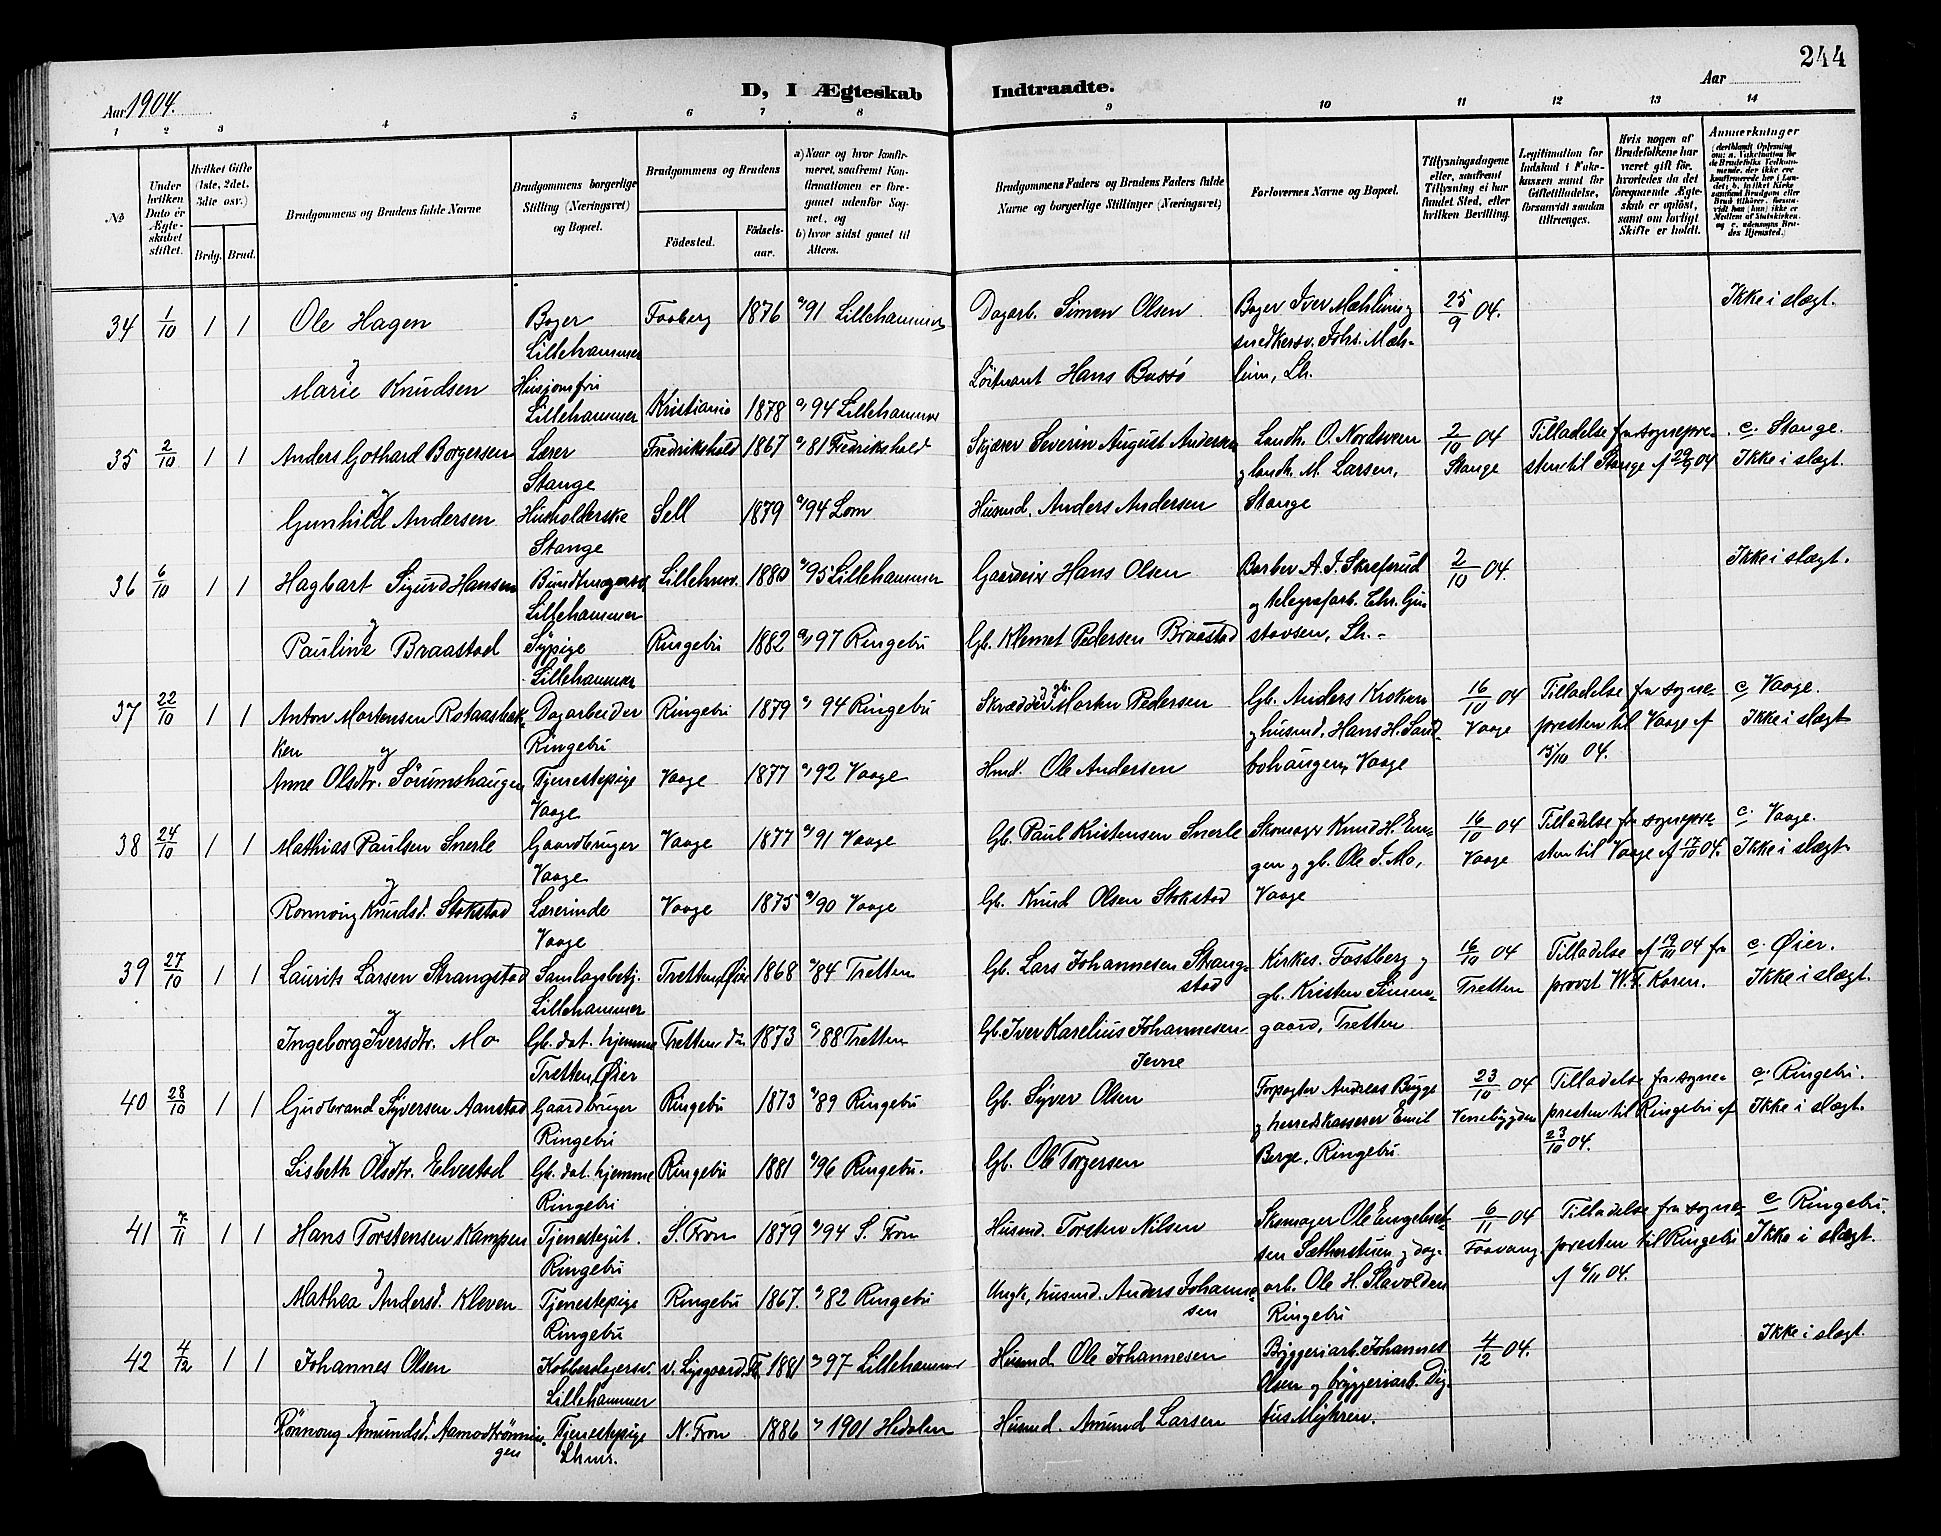 244
Aar 1904.
D, I Ægteskab Indtraadte.
Aar
1 2 3 4 5 6 7 8 9 10 11 12 13 14
No
Under hvilken Dato er Ægteskabet stiftet.
Hvilket Gifte (1ste, 2det, 3die osv.)
Brdg. Brud.
Brudgommens og Brudens fulde Navne
Brudgommens borgerlige Stilling (Næringsvei) og Bopæl.
Brudgommens og Brudens
Födested.
Födselsaar.
a) Naar og hvor konfirmeret, saafremt Konfirmationen er foregaaet udenfor Sognet, og
b) hvor sidst gaaet til Alters.
Brudgommens Faders og Brudens Faders fulde Navne og borgerlige Stillinger (Næringsvei)
Forlovernes Navne og Bopæl.
Tillysningsdagene eller, saafremt Tillysning ei har fundet Sted, efter hvilken Bevilling.
Legitimation for Indskud i Enkekassen samt for Giftetilladelse, forsaavidt saadan tiltrænges.
Hvis nogen af Brudefolkene har været gift før, hvorledes da det foregaaende Ægteskab er opløst, samt om lovligt Skifte er holdt.
Anmærkninger
34 1/10 1 1 Ole Hagen Bager Lillehammer Faaberg 1876 a) 91 Lillehammer Dagarb. Simen Olsen Bager Iver Mæhlum og snedkersv. Johs. Mæhlum, Lh. 25/9 04. Ikke i slægt.
og
Marie Knudsen Husjomfru Lillehammer Kristiania 1878 a) 94 Lillehammer Løitnant Hans Bassø
35 2/10 1 1 Anders Gothard Borgersen Lærer Stange Fredrikshald 1867 a) 81 Fredrikshald Skjærer Severin August Andersen Landh. O. Nordsveen og landh. M. Larsen, Stange 2/10 04 Stange Tilladelse fra sognepresten til Stange af 29/9 04 c. Stange. Ikke i slægt.
og
Gunhild Andersen Husholderske Stange Sell 1879 a) 94 Lom Husmd. Anders Andersen
36 6/10 1 1 Hagbart Sigurd Hansen Lillehammer Lillehmr. 1880 a) 95 Lillehammer Hans Olsen Barber A. J. Skrefsrud og telegrafarb. Chr. Gustavsen, Lh. 2/10 04. Ikke i slægt.
og
Pauline Braastad Sypige Lillehammer Ringebu 1882 a) 97 Ringebu Gb. Klemet Pedersen Braastad
37 22/10 1 1 Anton Mortensen Rotaasbakken Dagarbeider Ringebu Ringebu 1879 a) 94 Ringebu Skrædder og gb. Morten Pedersen Gb. Anders Kroken og husmd. Hans H. Sandbohaugen, Vaage 16/10 04 Vaage Tilladelse fra sognepresten til Vaage af 15/10 04. c. Vaage. Ikke i slægt
og
Anne Olsdtr. Sörumshaugen Tjenestepige Vaage Vaage 1877 a) 92 Vaage Hmd. Ole Andersen
38 24/10 1 1 Mathias Paulsen Snerle Gaardbruger Vaage Vaage 1877 a) 91 Vaage Gb. Paul Kristensen Snerle Skomager Knud H. Engen og gb. Ole J. Mo, Vaage 16/10 04 Vaage Tilladelse fra sognepresten til Vaage af 17/10 04. c. Vaage. Ikke i slægt
og
Rønnaug Knudsd. Stokstad Lærerinde Vaage Vaage 1875 a) 90 Vaage Gb. Knud Olsen Stokstad
39 27/10 1 1 Laurits Larsen Strangstad Samlagsbetj. Lillehammer Tretten, Øier 1868 a) 84 Tretten Gb. Lars Johannesen Strangstad Kirkes. Fostberg og gb. Kristen Simengaard, Tretten 16/10 04 Tretten Tilladelse af 19/10 04 fra provst W. F. Koren. c. Øier. Ikke i slægt.
og
Ingeborg Iversdtr. Mo Gb. dat. hjemme Tretten, Øier Tretten do 1873 a) 88 Tretten Gb. Iver Karelius Johannesen Jevne
40 28/10 1 1 Gudbrand Syversen Aanstad Gaardbruger Ringebu Ringebu 1873 a) 89 Ringebu Gb. Syver Olsen Forpagter Andreas Bugge og herredskasserer Emil Berge, Ringebu 23/10 04 Venebygden Tilladelse fra sognepresten til Ringebu af 23/10 04. c. Ringebu. Ikke i slægt.
og
Lisbeth Olsdtr. Elvestad Gb. dat. hjemme Ringebu Ringebu 1881 a) 96 Ringebu. Gb. Ole Torgersen
41 7/11 1 1 Hans Torstensen Kampen Tjenestegut. Ringebu S. Fron 1879 a) 94 S. Fron Husmd. Torsten Nilsen Skomager Ole Engebretsen Sætherstuen og dagarb. Ole H. Slavolden Ringebu 6/11 04 Faavang Tilladelse fra sognepresten til Ringebu af 6/11 04. c Ringebu. Ikke i slægt.
og
Mathea Andersd. Kleven Tjenestepige Ringebu Ringebu 1867. a) 82 Ringebu Ungk., husmd. Anders Johannesen
42 4/12 1 1 Johannes Olsen Kobberslagersv. Lillehammer 1881 a) 97 Lillehammer Husmd. Ole Johannesen Bryggeriarb. Johannes Olsen og bryggeriarb. Myhren. 4/12 04. Ikke i slægt.
og
Rønnaug Amundsd. Tjenestepige Lhmr. N. Fron 1886 a) 1901 Hedalen Husmd. Amund Larsen